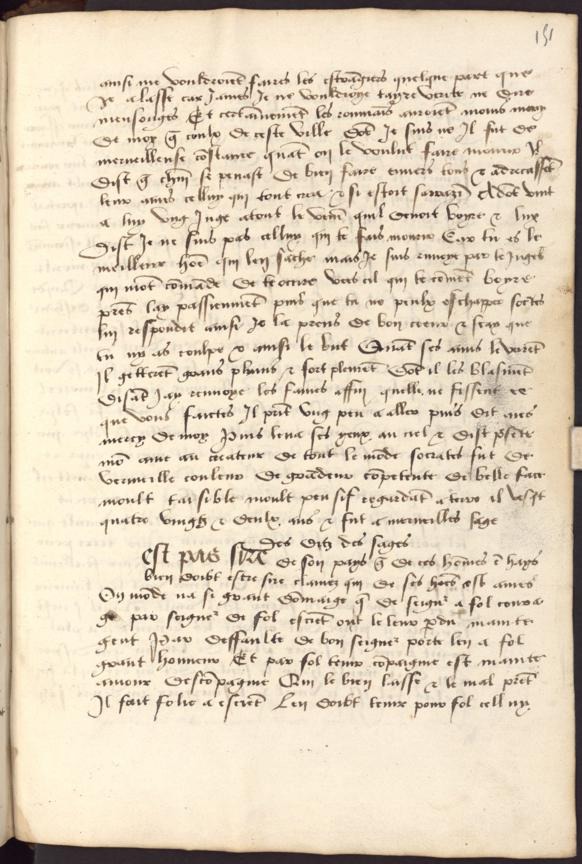 151
ainsi me vouldroient faires les estrãgiers quelque part que
Je alasse car James Je ne vouldroye tayre verite ne dire
mensonges Et certainement les rommais auroient moins mercy
de moy q̃ ceulx de ceste ville dõt Je suis ne Il fut de
merveilleuse cõstance quãt on le voulut faire mourir Il
dist q̃ chũ se penast de bien faire envers tous & adrecassẽt
leur ames celluy qui tout crea & si estoit sarrazin Adõt vint
a luy ung Juge atout le venĩ quil devoit boyre & luy
dist Je ne suis pas celluy qui te fais mourir Car tu es le
meilleur hõe que len sache mais Je suis envoye par le Juges
qui mõt cõmãde de te occire vees cil qui te cõviẽt boyre
prẽs lay passiẽment puis que tu ne peulx eschapper socrtes
luy respondit ainsi Je la prens de bon cœur & scay que
tu ny as coulpe & ainsi le but Quãt ses amis le virẽt
Il getterẽt grans plains & fort plouret Dõt il les blasmẽt
disãt Jay renvoye les fames affin quelle ne fissent ce
que vous faictes Il prĩt ung peu a aller puis dit aies
mercy de moy Puis leva ses yeux au ciel & dist p̃sẽte
mõ ame au createur de tout le mõde socrates fut de
vermeille couleur de grãdeur cõpetente de belle face
moult taisible moult pensif regardãt a terre il vesqt
quatre vingtz & deulx ans & fut a merveilles sage
des ditz des sages
Est pas sire de son pays q̃ de ces hõmes ẽ hays
bien doibt estre sire clames qui de ses hões est ames
Ou mõde na si grant dõmaige q̃ de seigr̃ a fol courai
ge par seignr̃ de fol esciẽt ont le leur p̃du mainte
gent Par deffaulte de bon seignr̃ porte len a fol
grant honneur Et par fol tenir cõpaigne est mainte
amour descõpaigne Qui le bien laisse & le mal prẽt
Il fait folie a esciẽt Len doibt tenir pour fol celluy